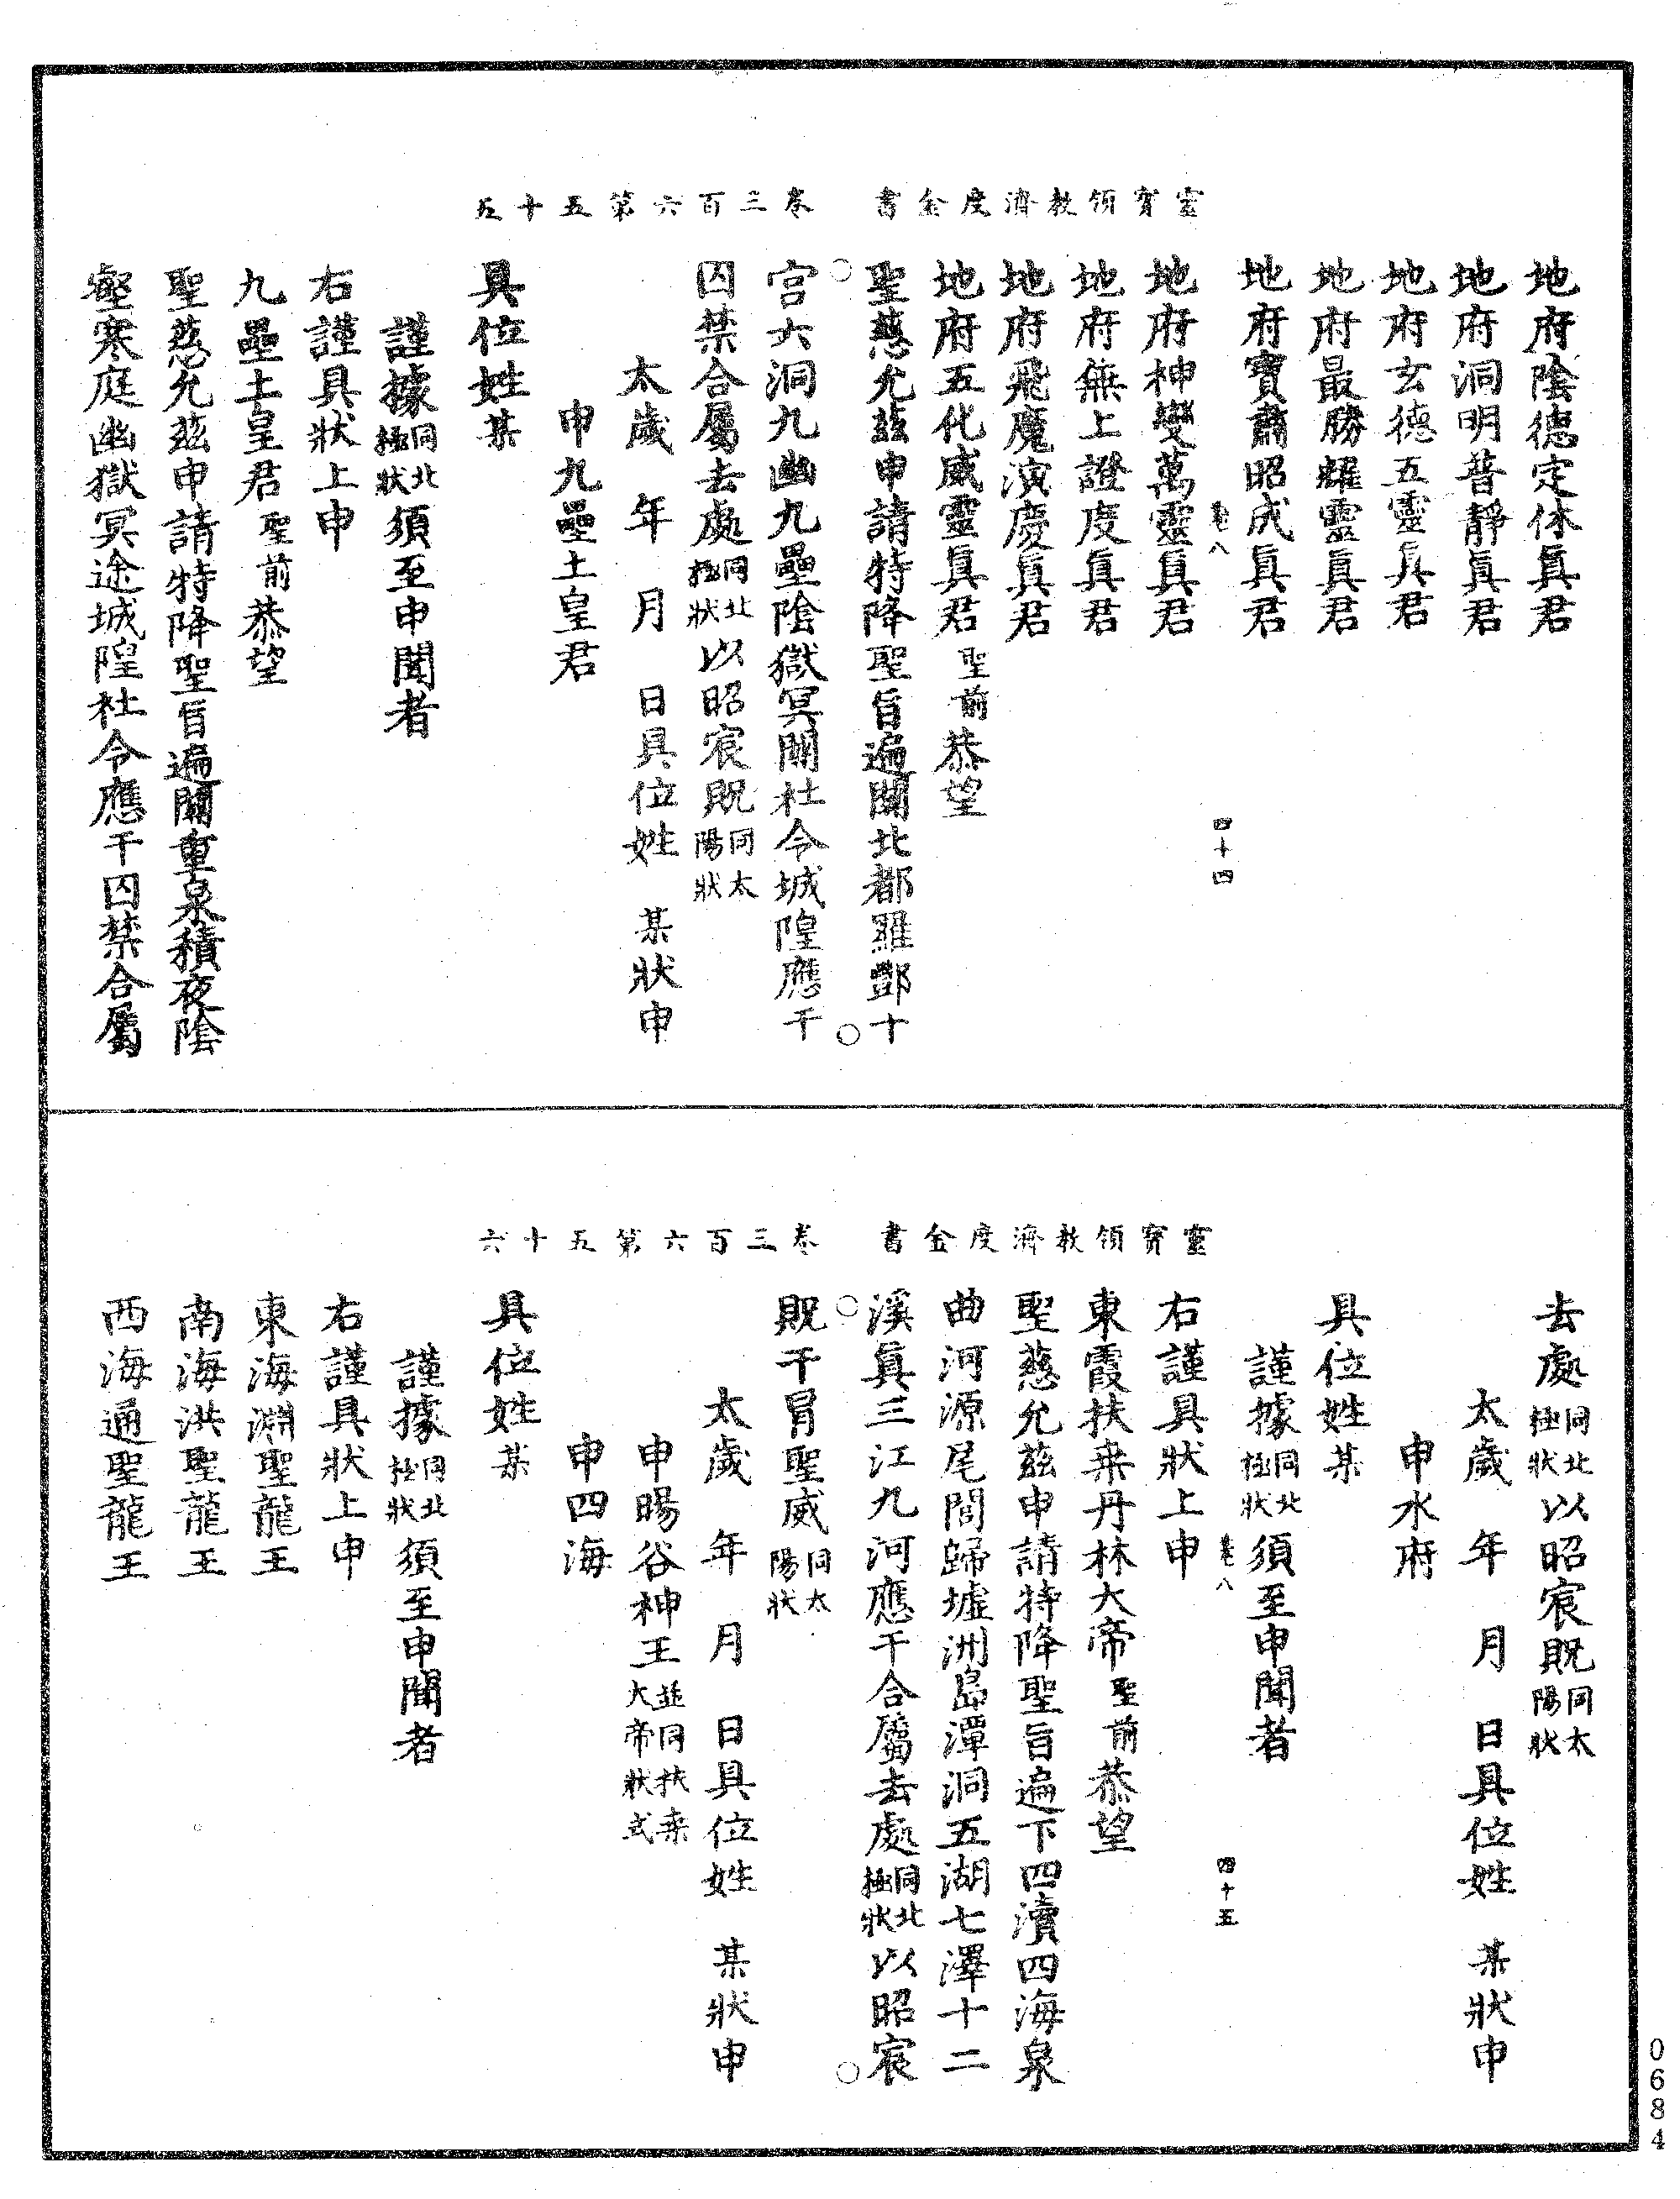 靈寶領教濟度金書　卷三百六　第五十五
地府陰德定休真君
地府洞明普靜真君
地府玄德五靈真君
地府最勝耀靈真君
地府寶肅昭成真君
㐲八　四十四
地府神變萬靈真君
地府無上證度真君
地府飛魔演慶真君
地府五化威靈真君聖前恭望
聖慈允茲申請特降聖旨遍關北都羅酆十
宮六洞九幽九壘陰獄冥關社令城隍應干
囚禁合屬去處同北極狀以昭宸貺同太陽狀
太歲　年　月　日具位姓　某狀申
申九壘土皇君
具位姓某
謹據同北極狀須至申聞者
右謹具狀上申
九壘土皇君聖前恭望
聖慈允茲申請特降聖旨遍關重泉積夜陰
壑寒庭幽獄冥途城隍社令應干囚禁合屬
靈寶領教濟度金書　卷三百六　第五十六
去處同北極狀以昭宸貺同太陽狀
太歲　年　月　日具位姓　某狀申
申水府
具位姓某
謹據同北極狀須至申聞者
㐲八　四十五
右謹具狀上申
東霞扶桒丹林大帝聖前恭望
聖慈允茲申請特降聖旨遍下四瀆四海泉
曲河源尾閭歸墟洲島潭洞五湖七澤十二
溪真三江九河應干合屬去處同北極狀以昭宸
貺干冒聖威同太陽狀
太歲　年　月　日具位姓　某狀申
申暘谷神王並同扶桒大帝狀式
申四海
具位姓某
謹據同北極狀須至申聞者
右謹具狀上申
東海淵聖龍王
南海洪聖龍王
西海通聖龍王
0684